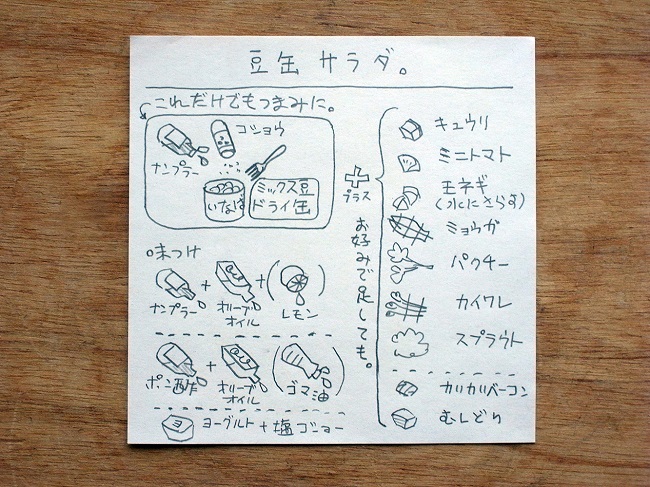 豆缶サラダ。
これだけでもつまみに。
コショウ
ナンプラー
いなば
ミックス豆
ドライ缶
プラス
お好みで足しても。
味つけ
ナンプラー + オリーブオイル + (レモン)
ポン酢 + オリーブオイル (ゴマ油)
ヨ ヨーグルト + 塩コショー
キュウリ
ミニトマト
玉ネギ
(水にさらす)
ミョウガ
パクチー
カイワレ
スプラウト
カリカリベーコン
むしどり